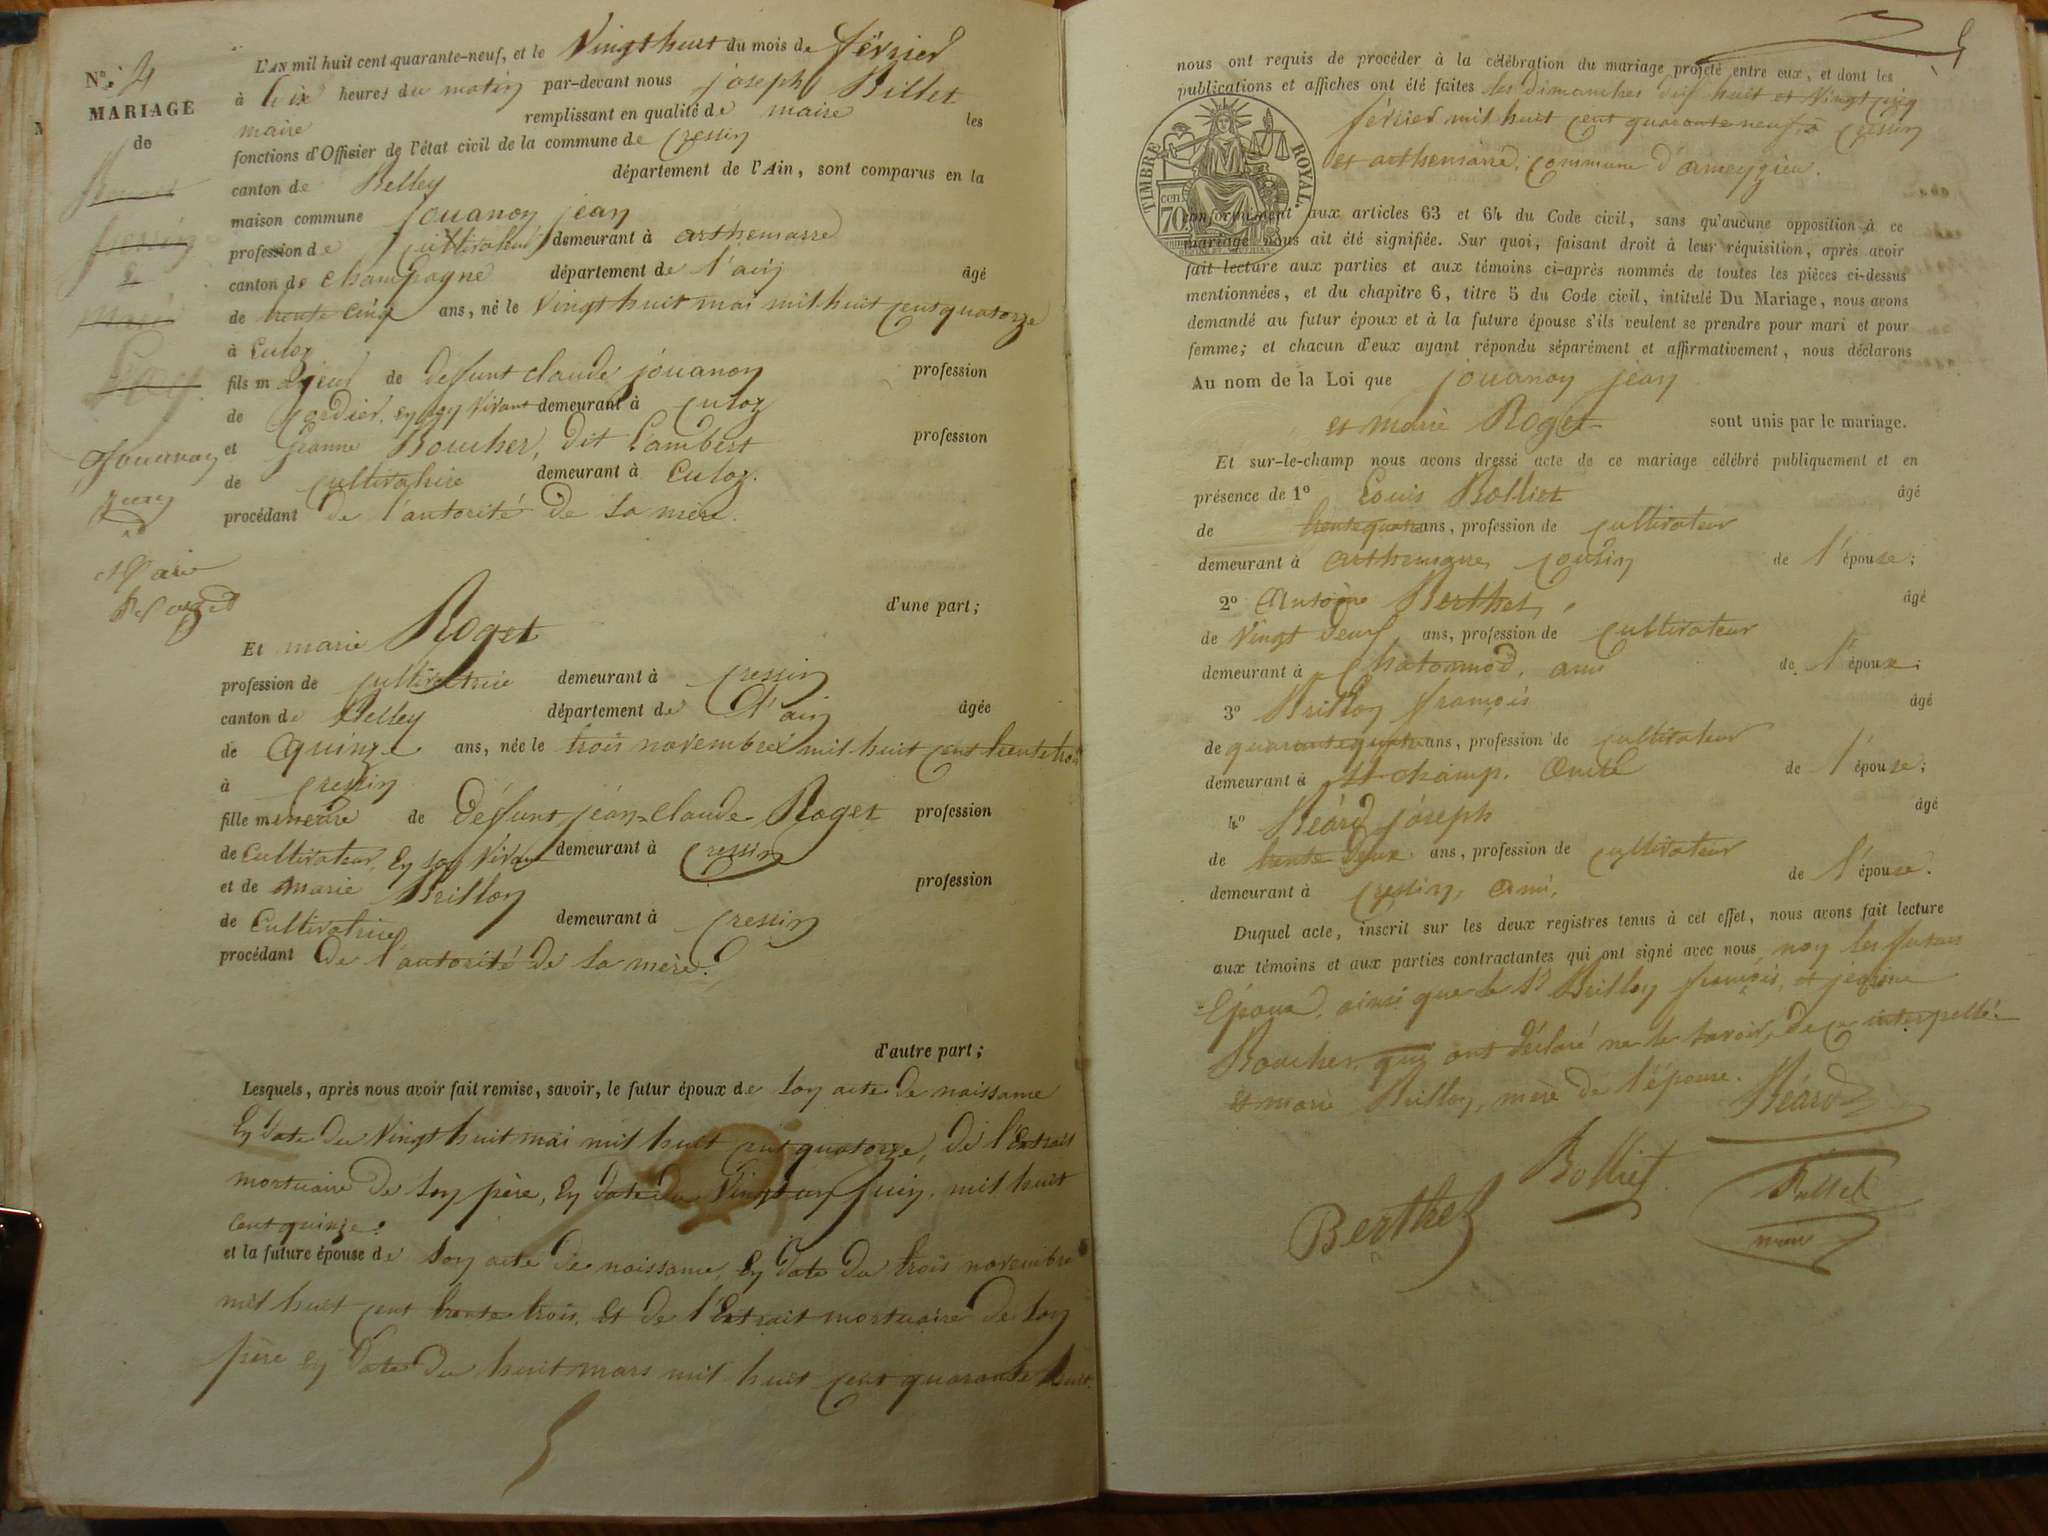 N.º 4
MARIAGE
de
Jouanon
Jean
et
Marie
Roget
L'AN mil huit cent quarante-neuf, et le Vingt huit du mois de février
à dix heures du matin par-devant nous joseph Billet
maire remplissant en qualité de maire les
fonctions d'Officier de l'état civil de la commune de Cressin
canton de Belley département de l'Ain, sont comparus en la
maison commune jouanon jean
profession de cultivateur demeurant à arthemarre
canton de champagne département de l'ain âgé
de trente cinq ans, né le Vingt huit mai mil huit cent quatorze
à Culoz
fils majeur de défunt claude jouanon profession
de Cordier, en son vivant demeurant à Culoz
et jeanne Boucher, dit Lambert profession
de cultivatrice demeurant à Culoz.
procédant de l'autorité de sa mère.
d'une part;
Et marie Roget
profession de cultivatrice demeurant à Cressin
canton de Belley département de l'ain âgée
de quinze ans, née le trois novembre mil huit cent trente trois
à Cressin
fille mineure de défunt jean-claude Roget profession
de Cultivateur, en son vivant demeurant à Cressin
et de marie Brillon profession
de Cultivatrice demeurant à Cressin
procédant de l'autorité de sa mère.
d'autre part;
Lesquels, après nous avoir fait remise, savoir, le futur époux de son acte de naissance
en date du vingt huit mai mil huit cent quatorze, de l'Extrait
mortuaire de son père, en date du Vingt un juin, mil huit
cent quinze.
et la future épouse de son acte de naissance, en date du trois novembre
mil huit cent trente trois, et de l'Extrait mortuaire de son
père en date du huit mars mil huit cent quarante huit.
nous ont requis de procéder à la célébration du mariage projeté entre eux, et dont les
publications et affiches ont été faites les dimanches dix huit et Vingt cinq
février mil huit cent quarante neuf, à Cressin
et arthemarre, commune d'ameyzieu.
TIMBRE ROYAL.
70 cen
conformément aux articles 63 et 64 du Code civil, sans qu'aucune opposition à ce
mariage nous ait été signifiée. Sur quoi, faisant droit à leur réquisition, après avoir
fait lecture aux parties et aux témoins ci-après nommés de toutes les pièces ci-dessus
mentionnées, et du chapitre 6, titre 5 du Code civil, intitulé Du Mariage, nous avons
demandé au futur époux et à la future épouse s'ils veulent se prendre pour mari et pour
femme; et chacun d'eux ayant répondu séparément et affirmativement, nous déclarons
Au nom de la Loi que jouanon jean
et marie Roget sont unis par le mariage.
Et sur-le-champ nous avons dressé acte de ce mariage célébré publiquement et en
présence de 1º Louis Bolliet âgé
de trente quatre ans, profession de cultivateur
demeurant à arthemarre, cousin de l'épouse;
2º Antoine Berthet, âgé
de Vingt neuf ans, profession de cultivateur
demeurant à Chatonnod, ami de l'époux;
3º Brillon françois âgé
de quarante quatre ans, profession de cultivateur
demeurant à St champ. Oncle de l'épouse;
4º Béard joseph âgé
de trente deux ans, profession de cultivateur
demeurant à Cressin, ami, de l'épouse.
Duquel acte, inscrit sur les deux registres tenus à cet effet, nous avons fait lecture
aux témoins et aux parties contractantes qui ont signé avec nous, non les futurs
Epoux, ainsi que le Sr Brillon françois, et jeanne
Boucher, qui ont déclaré ne le savoir, de ce interpellé.
et marie Brillon, mère de l'épouse.
Béard
Bolliet
Billet
maire
Berthet